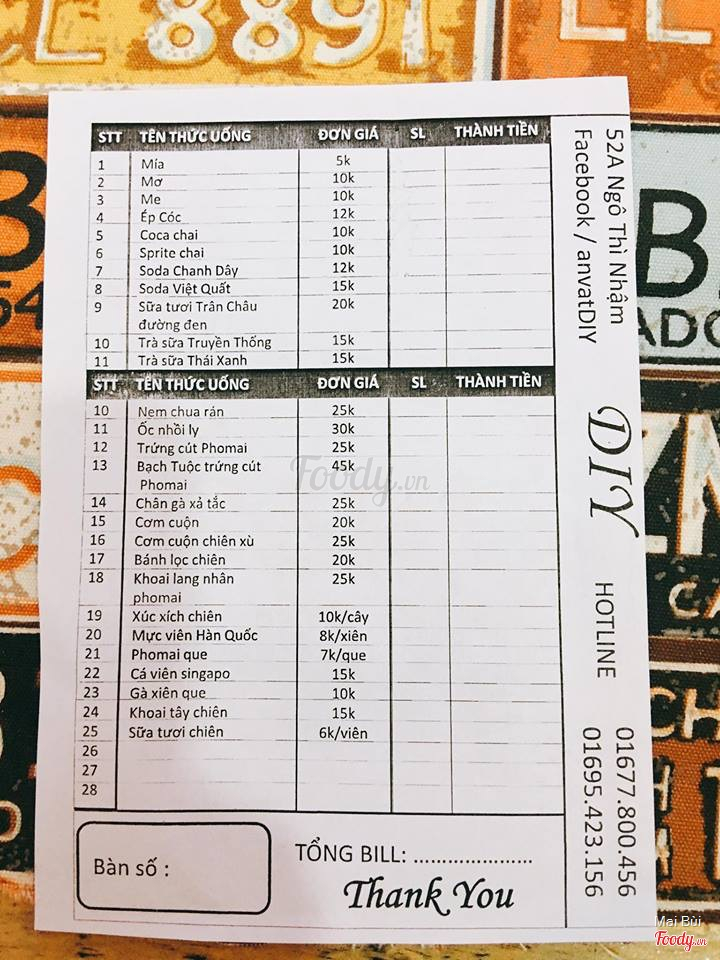 8891
STT TÊN THỨC UỐNG ĐƠN GIÁ SL THÀNH TIỀN
1 Mía 5k
2 Mơ 10k
3 Me 10k
4 Ép Cóc 12k
5 Coca chai 10k
6 Sprite chai 10k
7 Soda Chanh Dây 12k
8 Soda Việt Quất 15k
9 Sữa tươi Trân Châu 20k
đường đen
10 Trà sữa Truyền Thống 15k
11 Trà sữa Thái Xanh 15k
STT TÊN THỨC UỐNG ĐƠN GIÁ SL THÀNH TIỀN
10 Nem chua rán 25k
11 Ốc nhồi ly 30k
12 Trứng cút Phomai 25k
13 Bạch Tuộc trứng cút 45k
Phomai
14 Chân gà xả tắc 25k
15 Cơm cuộn 20k
16 Cơm cuộn chiên xù 25k
17 Bánh lọc chiên 20k
18 Khoai lang nhân 25k
phomai
19 Xúc xích chiên 10k/cây
20 Mực viên Hàn Quốc 8k/xiên
21 Phomai que 7k/que
22 Cá viên singapo 15k
23 Gà xiên que 10k
24 Khoai tây chiên 15k
25 Sữa tươi chiên 6k/viên
26
27
28
Bàn số :
TỔNG BILL: .....................
Thank You
52A Ngô Thì Nhậm
Facebook / anvatDIY
DIY
HOTLINE
01677.800.456
01695.423.156
Foody.vn
Mai Bùi
Foody.vn